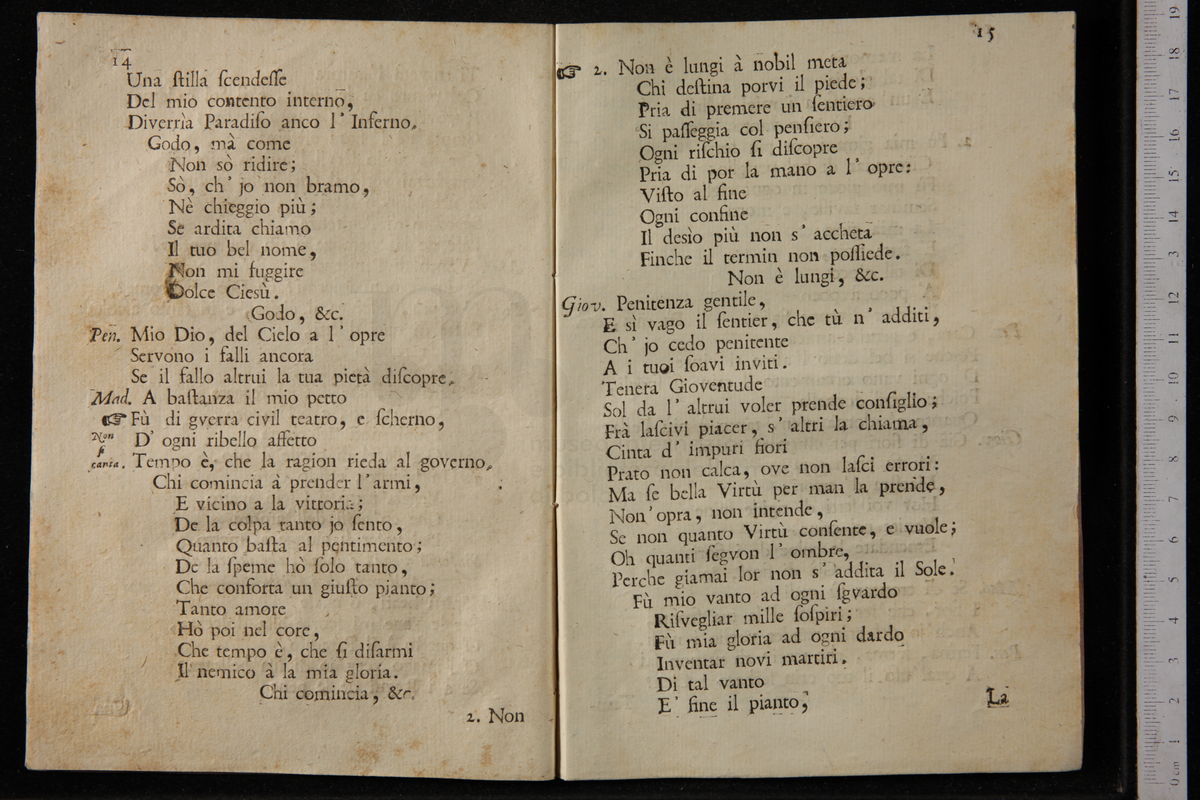 14
Una ſtilla ſcendeſſe
Del mio contento interno,
Diverrìa Paradiſo anco l' Inferno.
Godo, mà come
Non sò ridire;
Sò, ch' jo non bramo,
Nè chieggio più;
Se ardita chiamo
Il tuo bel nome,
Non mi fuggire
Dolce Giesù.
Godo, &c.
Pen. Mio Dio, del Cielo a l' opre
Servono i falli ancora
Se il fallo altrui la tua pietà diſcopre.
Mad. A baſtanza il mio petto
☞ Fù di gverra civil teatro, e ſcherno,
Non D' ogni ribello affetto
ſi
canta. Tempo è, che la ragion rieda al governo.
Chi comincia à prender l'armi,
E vicino a la vittoria;
De la colpa tanto jo ſento,
Quanto baſta al pentimento;
De la ſpeme hò ſolo tanto,
Che conforta un giuſto pianto;
Tanto amore
Hò poi nel core,
Che tempo è, che ſi diſarmi
Il nemico à la mia gloria.
Chi comincia, &c.
2. Non
15
☞ 2. Non è lungi à nobil meta
Chi deſtina porvi il piede;
Pria di premere un ſentiero
Si paſſeggia col penſiero;
Ogni riſchio ſi diſcopre
Pria di por la mano a l' opre:
Viſto al fine
Ogni confine
Il desìo più non s' accheta
Finche il termin non poſſiede.
Non è lungi, &c.
Giov. Penitenza gentile,
E sì vago il ſentier, che tù n' additi,
Ch' jo cedo penitente
A i tuoi ſoavi inviti.
Tenera Gioventude
Sol da l' altrui voler prende conſiglio;
Frà laſcivi piacer, s' altri la chiama,
Cinta d' impuri fiori
Prato non calca, ove non laſci errori:
Ma ſe bella Virtù per man la prende,
Non' opra, non intende,
Se non quanto Virtù conſente, e vuole;
Oh quanti ſegvon l' ombre,
Perche giamai lor non s' addita il Sole.
Fù mio vanto ad ogni ſgvardo
Riſvegliar mille ſoſpiri;
Fù mia gloria ad ogni dardo
Inventar novi martiri.
Di tal vanto
E' fine il pianto;
La